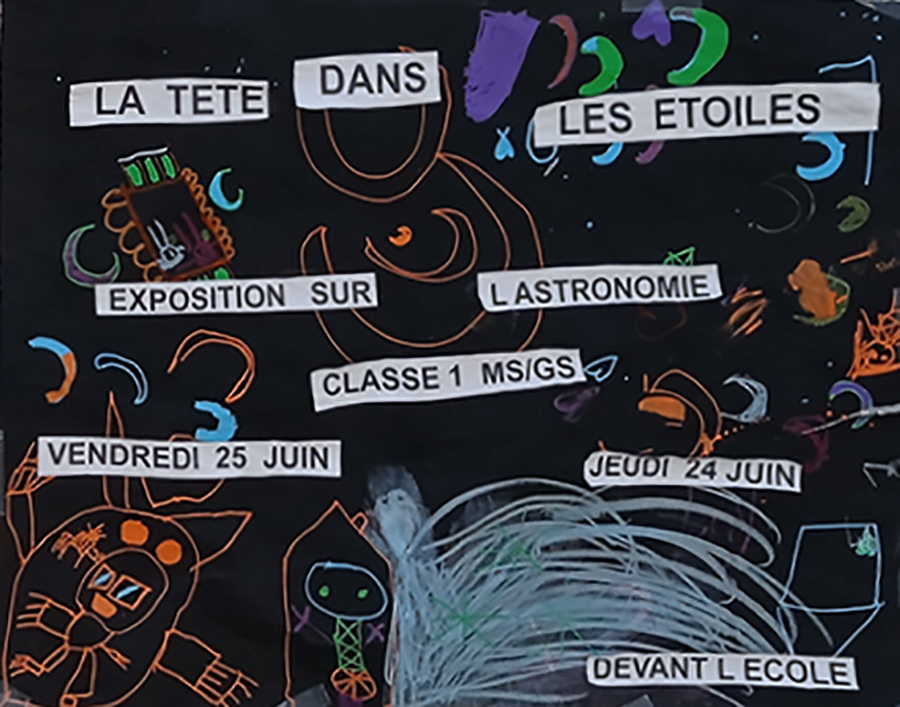 LA TETE DANS LES ETOILES
EXPOSITION SUR L ASTRONOMIE
CLASSE 1 MS/GS
VENDREDI 25 JUIN
JEUDI 24 JUIN
DEVANT L ECOLE